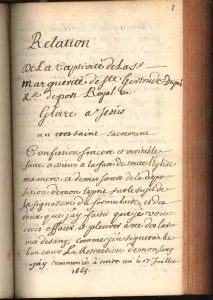 1
Relation
De La Captivité de La Sr
Marguerite de Ste Gertrude Dupré
Rse de port Royal
Gloire a Jesus
au tres saint sacrement
Confession sincere et veritable
faite a Dieu a la face de toute l'Eglise
ma mere et demes soeurs de la dispo
sition de mon esprit sur le sujet de
la signature du formulaire, et des
deux que j'ay faites que je vou
drois effacer et pleurer avec des lar
mes de sang, comme j'en signerois de
bon coeur La Retractation de mon sang
j'ay commencé a ecrire ceci le 17 Juillet
1665